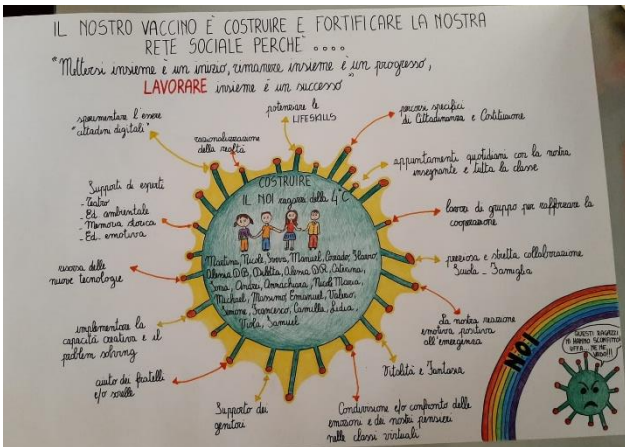 IL NOSTRO VACCINO È COSTRUIRE E FORTIFICARE LA NOSTRA
RETE SOCIALE PERCHÈ ....
"Mettersi insieme è un inizio, rimanere insieme è un progresso,
LAVORARE insieme è un successo"
sperimentare l'essere
"cittadini digitali"
razionalizzazione
della realtà
potenziare le
LIFESKILLS
percorsi specifici
di Cittadinanza e Costituzione
appuntamenti quotidiani con la nostra
insegnante e tutta la classe
lavori di gruppo per rafforzare la
cooperazione
preziosa e stretta collaborazione
Scuola - Famiglia
La nostra reazione
emotiva positiva
all'emergenza
Vitalità e Fantasia
Condivisione e/o confronto delle
emozioni e dei nostri pensieri
nelle classi virtuali
Supporto dei
genitori
aiuto dei fratelli
e/o sorelle
implementare la
capacità creativa e il
problem solving
risorsa delle
nuove tecnologie
Supporti di esperti
- Teatro
- Ed. ambientale
- Memoria storica
- Ed. emotiva
COSTRUIRE
IL NOI ragazzi della 4°C
Martina, Nicole, Manuel, Corrado, Flavio,
Alessia D.B, Alessia D.R, Caterina,
Andrei, Annachiara, Nicol Maria,
Michael, Massimo, Emanuel, Valerio,
Simone, Francesco, Camilla, Lidia,
Viola, Samuel
NOI
QUESTI RAGAZZI
MI HANNO SCONFITTO
UFFA... ME NE
VADO!!!